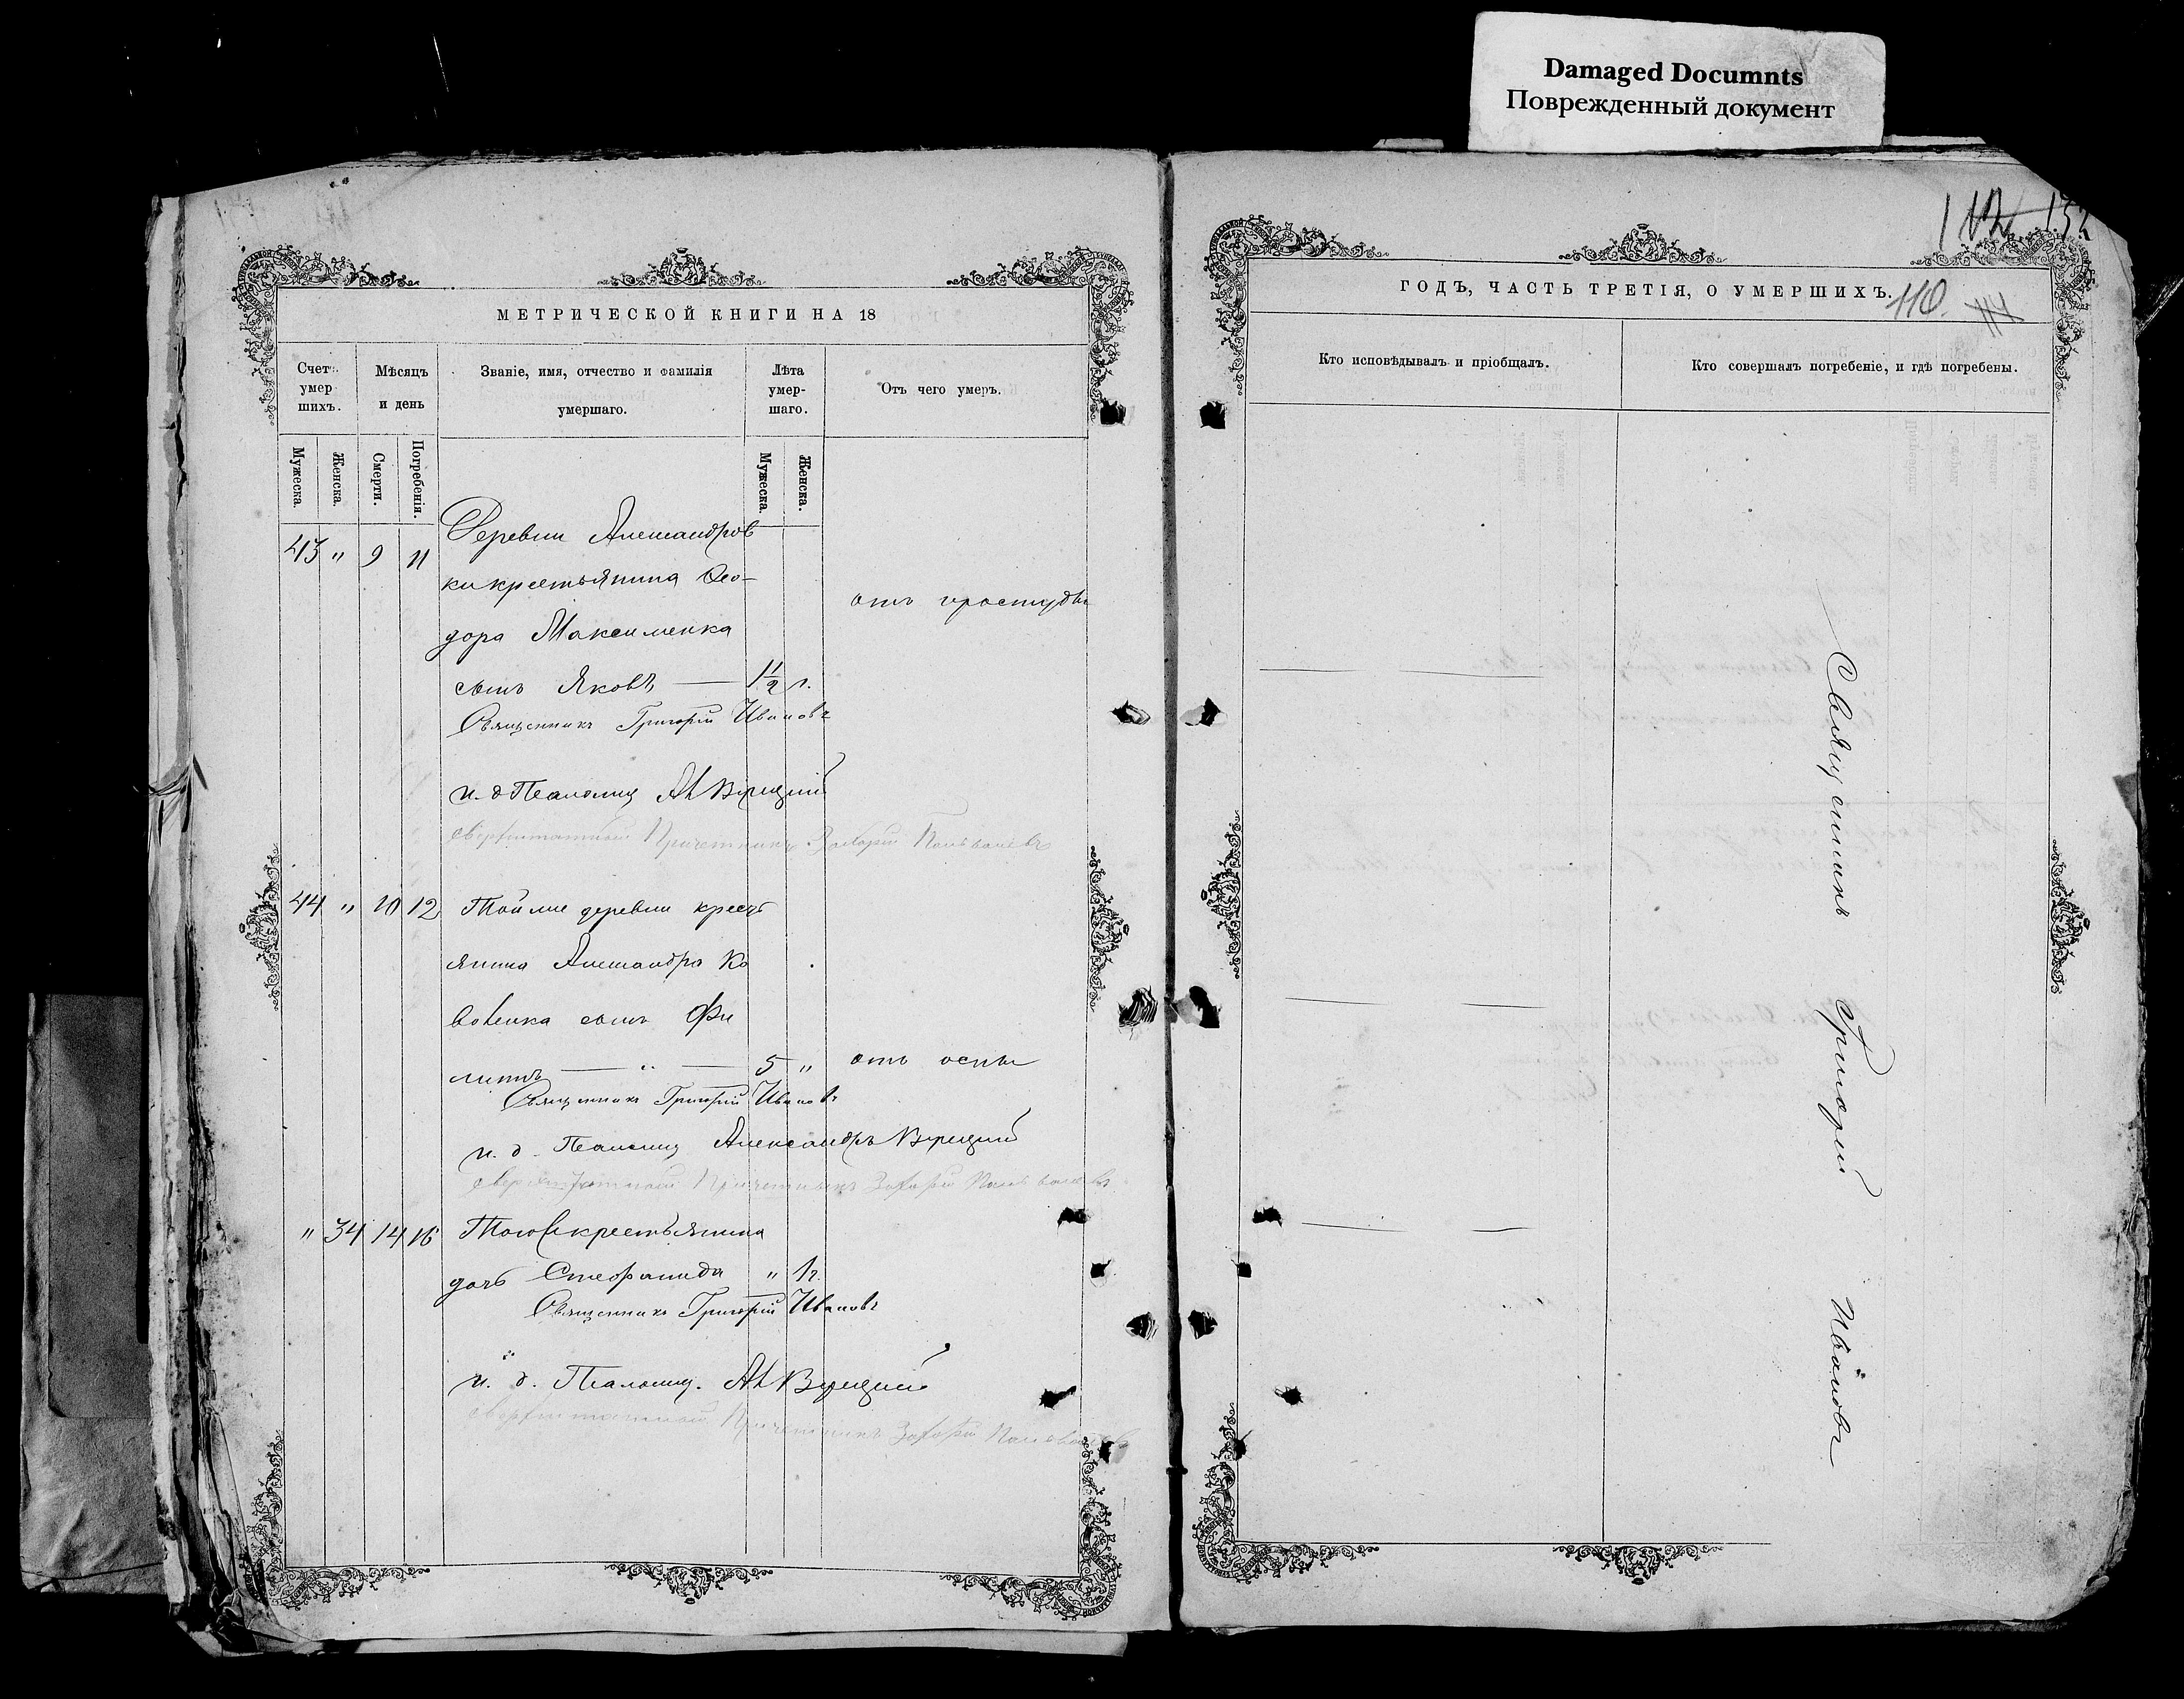 Damaged Documnts
Поврежденный документ
132
110.
МЕТРИЧЕСКОЙ КНИГИ НА 18
Счетъ умер шихъ.
Мѣсяцъ и день
Званіе, имя, отчество и фамилія умершаго.
Лѣта умер- шаго.
Отъ чего умеръ.
Мужеска.
Женска.
Смерти.
Погребенія.
Мужеска.
Женска.
43 " 9 11 Деревни Александров
ки крестьянина Ѳео-
дора Максименка
отъ простуды
сынъ Яковъ — 1 1/2 г.
Священникъ Григорій Ивановъ
и. д. Псаломщ
сверхштатный Причетникъ Захарій
44 " 10 12 Той же деревни кресть
янина Александра Ко
вбенка сынъ Фи
липъ — " — 5 " отъ оспы
Священникъ Григорій Ивановъ
и. д. Псаломщ Александръ
сверхштатный Причетникъ Захарій
" 34 14 16 Того же крестьянина
дочь Стефанида " 1 г.
Священникъ Григорій Ивановъ
и. д. Псаломщ.
сверхштатный Причетникъ Захарій
ГОДЪ, ЧАСТЬ ТРЕТІЯ, О УМЕРШИХЪ.
Кто исповѣдывалъ и пріобщалъ.
Кто совершалъ погребеніе, и гдѣ погребены.
Священникъ Григорій Ивановъ